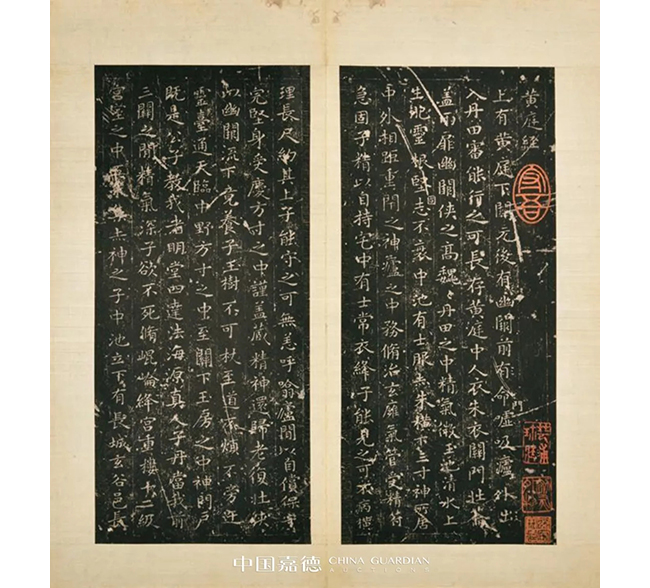 黄庭經
上有黄庭下關元後有幽闕前有命廬吸廬外出
入丹田審能行之可長存黄庭中人衣朱衣關門壯籥
蓋兩扉幽闕俠之高魏〻丹田之中精氣微玉池清水上
生肥靈根堅志不衰中池有士服赤朱橫下三寸神所居
中外相距重閉之神廬之中務脩治玄廱氣管受精符
急固子精以自持宅中有士常衣絳子能見之可不病橫
理長尺約其上子能守之可無恙呼噏廬間以自償保守
完堅身受慶方寸之中謹蓋藏精神還歸老復壯俠
以幽闕流下竟養子玉樹不可杖至道不煩不旁迕
靈臺通天臨中野方寸之中至關下玉房之中神門戶
既是公子教我者明堂四達法海源真人子丹當我前
三關之間精氣深子欲不死脩崐崘絳宮重樓十二級
宮室之中采赤神之子中池立下有長城玄谷邑長
中国嘉德 CHINA GUARDIAN
AUCTIONS